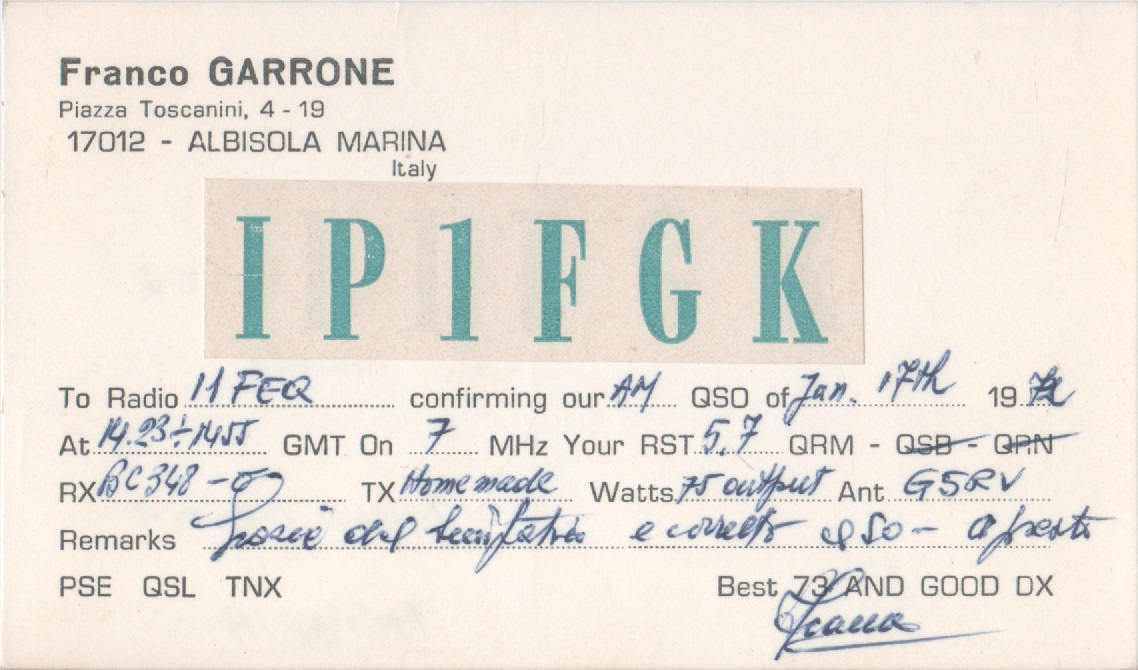 Franco GARRONE
Piazza Toscanini, 4 - 19
17012 - ALBISOLA MARINA
Italy
IP1FGK
To Radio I1FEQ confirming our AM QSO of Jan. 17th 19
At 14.23÷1455 GMT On 7 MHz Your RST 5.7 QRM - QSB - QRN
RX BC348-Q TX Homemade Watts 75 output Ant G5RV
Remarks Grazie del e corretto QSO - a presto
PSE QSL TNX Best 73 AND GOOD DX
Franco